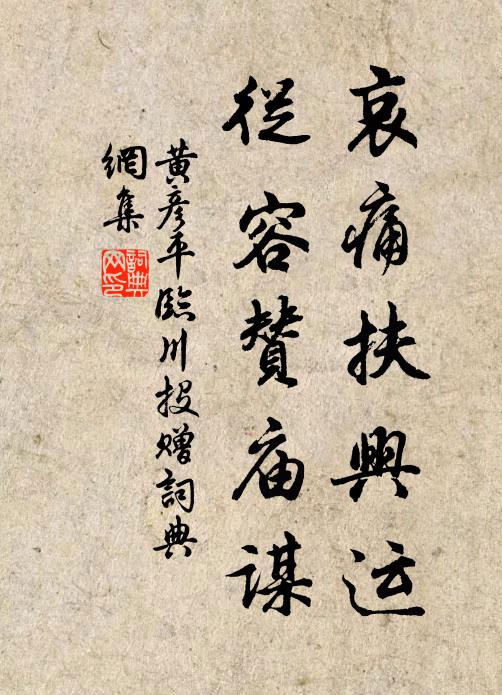 哀痛扶興运
從容贊庙謀
黄彦平臨川投赠詞典
網集
詞典
网印